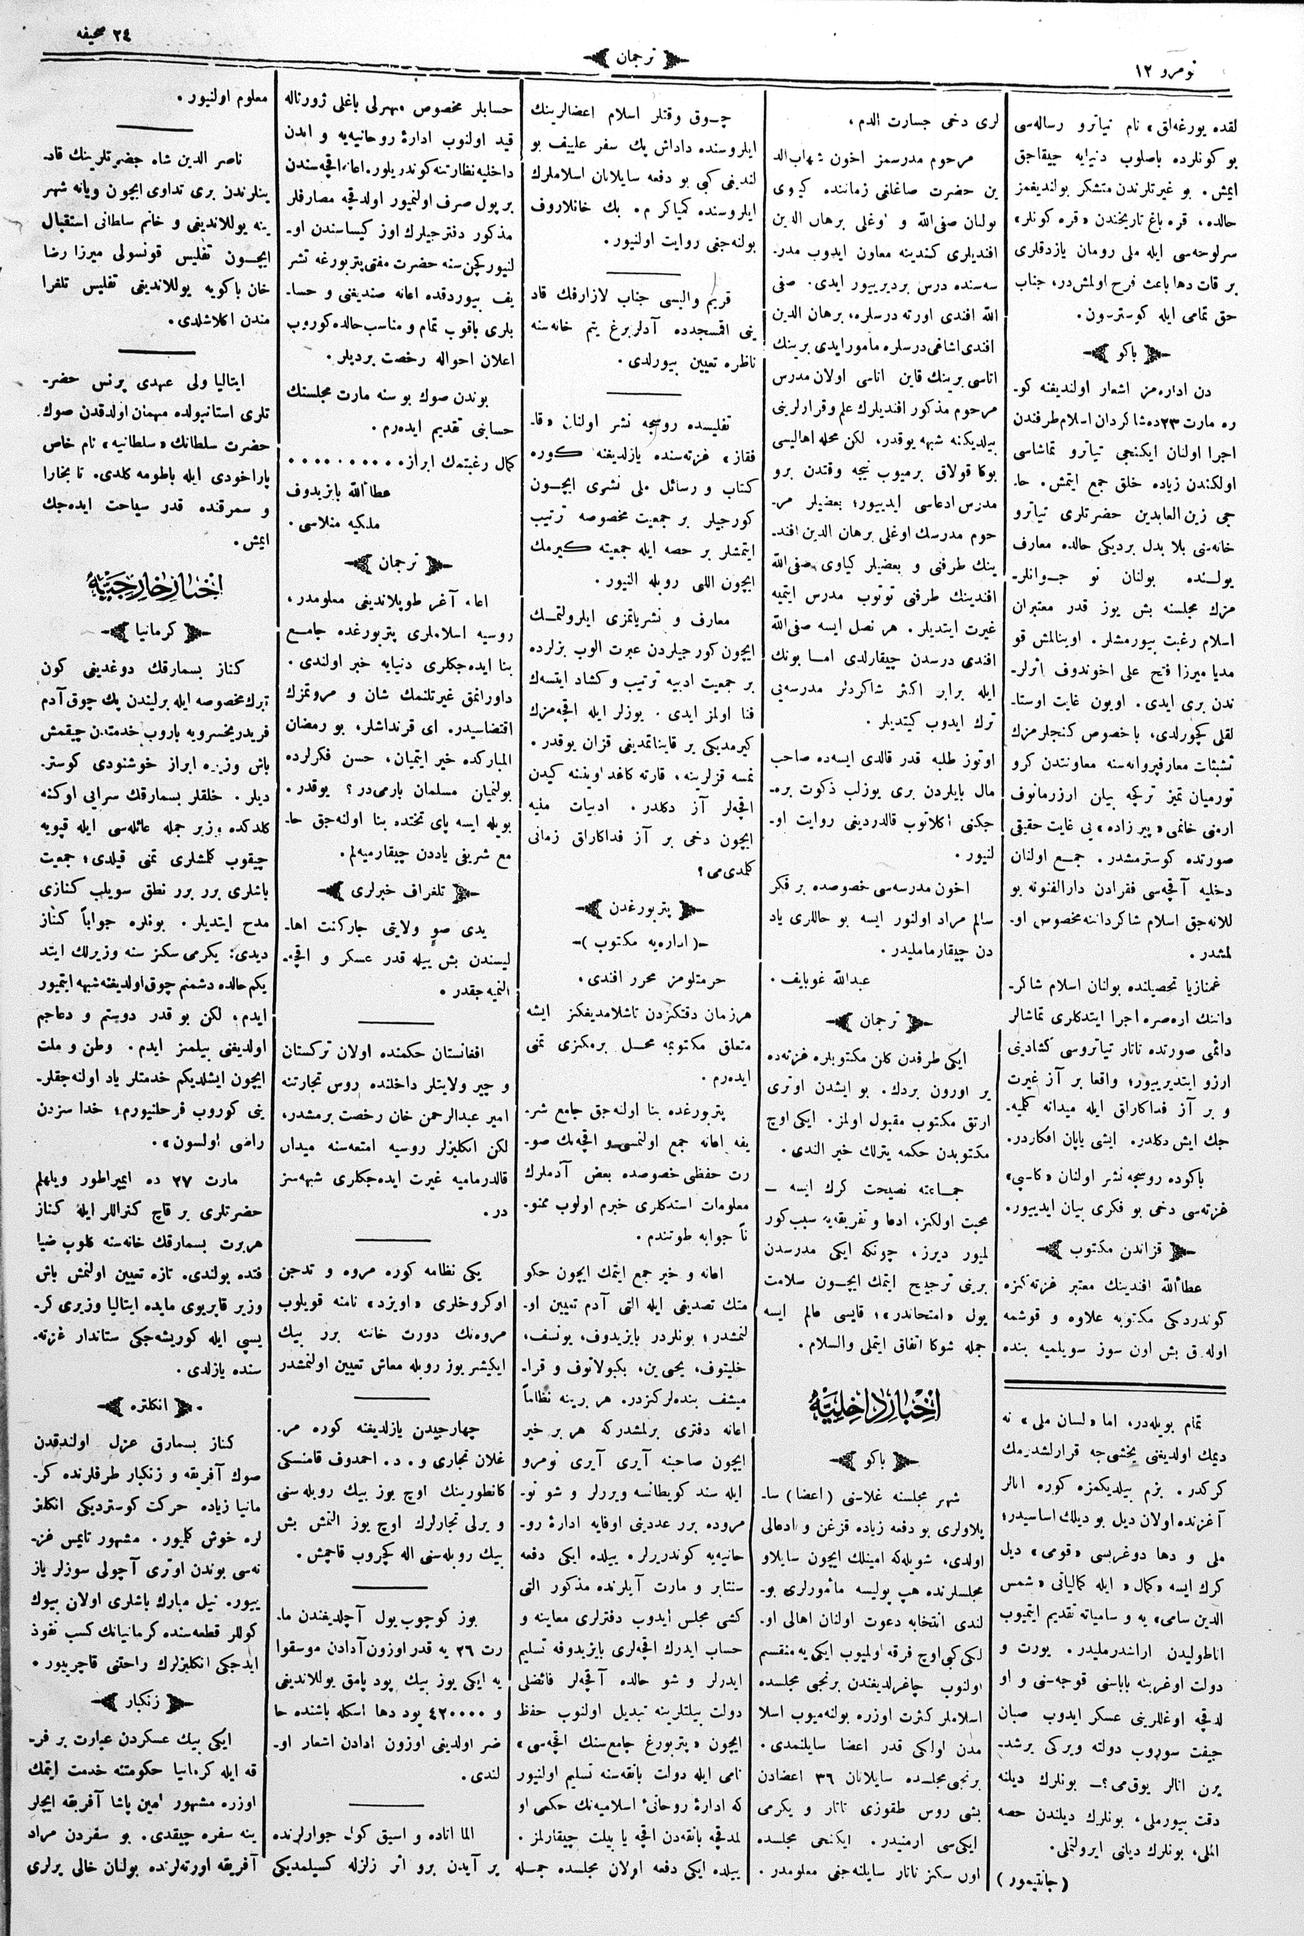 نومرو ١٢
ترجمان
٢٤ صحیفه
لقده یورغه‌لق» نام تیاترو رساله‌سی
بو کونلرده باصلوب دنیایه چیقاجق
ایمش. بو غیرتلرندن متشکر بولندیغمز
حالده، قره باغ تاریخندن «قره کونلر»
سرلوحه‌سی ایله ملی رومان یازدقلری
بر قات دها باعث فرح اولمش‌در، جناب
حق تمامی ایله کوسترسون.
باکو
دن اداره‌مز اشعار اولندیغنه کو-
ره مارت ٢٣ده شاکردان اسلام طرفندن
اجرا اولنان ایکنجی تیاترو تماشاسی
اولکندن زیاده خلق جمع ایتمش. حا-
جی زین العابدین حضرتلری تیاترو
خانه‌سنی بلا بدل بردیکی حالده معارف
یولنده بولنان نو جوانلر-
مزك مجلسنه بش یوز قدر معتبران
اسلام رغبت بیورمشلر. اوینالمش قو
مدیا میرزا فتح علی اخوندوف اثرلر-
ندن بری ایدی. اویون غایت اوستا-
لقلی کچورلدی، باخصوص کنجلرمزك
تشبثات معارفپروانه‌سنه معاونتدن کرو
تورمیان تمیز ترکچه بیان ارزرمانوف
ارمنی خانمی «پیر زاده» یی غایت حقیقی
صورتده کوسترمشدر. جمع اولنان
دخلیه آقچه‌سی فقرادن دارالفنونه یو
للانه‌جق اسلام شاکرداننه مخصوص او-
لمشدر.
غمنازیا تحصیلنده بولنان اسلام شاکر-
داننك اره‌صره اجرا ایتدکلری تماشالر
دائمی صورتده تاتار تیاتروسی کشادینی
ارزو ایتدیرییور؛ واقعا بر آز غیرت
و بر آز فداکارلق ایله میدانه کلمیه-
جك ایش دکلدر. ایشی یاپان افکاردر.
باکوده روسجه نشر اولنان «کاسپی»
غزته‌سی دخی بو فکری بیان ایدییور.
قزاندن مکتوب
عطاالله افندینك معتبر غزته‌کزه
کوندردیکی مکتوبه علاوه و قوشمه
اوله‌رق بش اون سوز سویلمیه بنده
تمام بویله‌در، اما «لسان ملی» نه
دیمك اولدیغنی یخشی‌جه قرارلشدرمك
کرکدر. بزم بیلدیکمزه کوره انالر
آغزنده اولان دیل بو دیلك اساسیدر؛
ملی و دها دوغریسی «قومی» دیل
کرك ایسه «کمال» ایله کمالیاتی «شمس
الدین سامی» یه و سامیاته تقدیم ایتمیوب
اناطولیدن اراشدرملیدر. یورت و
دولت اوغرینه باباسنی قوجه‌سنی و او
لدقچه اوغللرینی عسکر ایدوب صبان
جیفت سوروب دولته ویرکی برشد-
یرن انالر یوق‌می؟ـ بونلرك دیلنه
دقت بیورملی، بونلرك دیلندن حصه
المالی، بونلرك دیانی ایرولتملی.
(جانتیمور)
لری دخی جسارت الدم.
مرحوم مدرسمز اخون شهاب‌الد
ین حضرت صاغلغی زماننده کیوی
بولنان صفی‌الله و اوغلی برهان الدین
افندیلری کندینه معاون ایدوب مدر-
سه‌سنده درس بردیرییور ایدی. صفی
الله افندی اورته درسلره، برهان الدین
افندی اشاغی درسلره مامور ایدی برینك
اتاسی برینك قاین اتاسی اولان مدرس
مرحوم مذکور افندیلرك علم و قرارلرینی
بیلدیکنه شبهه یوقدر، لکن محله اهالیسی
بوکا قولاق برمیوب نیجه وقتدن برو
مدرس ادعاسی ایدییور؛ بعضیلر مر-
حوم مدرسك اوغلی برهان الدین افند-
ینك طرفنی و بعضیلر کیاوی صفی‌الله
افندینك طرفنی توتوب مدرس ایتمیه
غیرت ایتدیلر. هر نصل ایسه صفی‌الله
افندی درسدن چیقارلدی اما بونك
ایله برابر اکثر شاکردلر مدرسه‌یی
ترك ایدوب کیتدیلر.
اوتوز طلبه قدر قالدی ایسه‌ده صاحب
مال بایلردن بری یوزلب ذکوت بره-
جکنی اکلاتوب قالدردیغی روایت او-
لنیور.
اخون مدرسه‌سی خصوصده بر فکر
سالم مراد اولنور ایسه بو حاللری یاد
دن چیقارمامالیدر.
عبدالله غوبایف.
ترجمان
ایکی طرفدن کلن مکتوبلره غزته‌ده
یر اورون بردك. بو ایشدن اوتری
ارتق مکتوب مقبول اولمز. ایکی اوچ
مکتوبدن حکمه یترلك خبر الندی.
جماعته نصیحت کرك ایسه ـ
محبت اولکز، ادعا و تفریقه‌یه سبب کور
لمیور دیرز، چونکه ایکی مدرسدن
برینی ترجیح ایتمك ایچون سلامت
یول «امتحاندر»؛ قایسی عالم ایسه
جمله شوکا اتفاق ایتملی والسلام.
اخبار داخلیه
باکو
شهر مجلسنه غلاسنی (اعضا) سا-
یلاولری بو دفعه زیاده قزغن و ادعالی
اولدی، شویله‌که امینلك ایچون سایلاو
مجلسلرنده هپ پولیسه مأمورلری بو-
لندی انتخابه دعوت اولنان اهالی او-
لکی کبی اوچ فرقه اولمیوب ایکی‌یه منقسم
اولنوب چاغرلدیغندن برنجی مجلسده
اسلاملر کثرت اوزره بولنه‌میوب اسلا
مدن اولکی قدر اعضا سایلنمدی.
برنجی مجلسده سایلانان ٣٦ اعضادن
بشی روس طقوزی تاتار و یکرمی
ایکی‌سی ارمنیدر. ایکنجی مجلسده
اون سکز تاتار سایلنه‌جغی معلومدر.
چوق وقتلر اسلام اعضالرینك
ایلروسنده داداش بك سفر علییف بو
لندیغی کبی بو دفعه سایلانان اسلاملرك
ایلروسنده کمیاکر م. بك خانلاروف
بولنه‌جغی روایت اولنیور.
قریم والیسی جناب لازارفك قاد
ینی اقمسجدده آدلربرغ یتیم خانه‌سنه
ناظره تعیین بیورلدی.
تفلیسده روسجه نشر اولنان «قا-
فقاز» غزته‌سنده یازلدیغنه کوره
کتاب و رسائل ملی نشری ایچون
کورجیلر بر جمعیت مخصوصه ترتیب
ایتمشلر بر حصه ایله جمعیته کیرمك
ایچون اللی روبله النیور.
معارف و نشریاتمزی ایلرولتمك
ایچون کورجیلردن عبرت الوب بزلرده
بر جمعیت ادبیه ترتیب و کشاد ایتسه‌ك
فنا اولمز ایدی. یوزلر ایله اقچه‌مزك
کیرمدیکی بر قایناتمدیغی قزان یوقدر.
نمسه قزلرینه، قارته کاغد اویننه کیدن
اقچه‌لر آز دکلدر. ادبیات ملیه
ایچون دخی بر آز فداکارلق زمانی
کلمدی‌می؟
پتربورغدن
-(اداره‌یه مکتوب)-
حرمتلومز محرر افندی.
هر زمان دقتکزدن تاشلامدیغکز ایشه
متعلق مکتوبمه محل برمکزی تمنی
ایده‌رم.
پتربورغده بنا اوله‌جق جامع شر-
یفه اعانه جمع اولنمسی و اقچه‌نك صو-
رت حفظی خصوصده بعض آدملرك
معلومات استدکلری خبرم اولوب ممنو-
ناً جوابه طوتندم.
اعانه و خیر جمع ایتمك ایچون حکو
متك تصدیقی ایله التی آدم تعیین او-
لنمشدر؛ بونلردر بایزیدوف، یونسف،
خلیتوف، یحیی ین، بکبولاتوف و قرا-
میشف بنده‌لرکزدر. هر برینه نظاماً
اعانه دفتری برلمشدر که هر بر خیر
ایچون صاحبنه آیری آیری نومرو
ایله سند کویطانسه ویررلر و شو نو-
مروده بر عددینی اوفایه ادارهٔ رو-
حانیه‌یه کوندریرلر. ییلده ایکی دفعه
سنتابر و مارت آیلرنده مذکور التی
کشی مجلس ایدوب دفترلری معاینه و
حساب ایدرك اقچه‌لری بایزیدوفه تسلیم
ایدرلر و شو حالده آقچه‌لر فائضلی
دولت بیلتلرینه تبدیل اولنوب حفظ
ایچون «پتربورغ جامع‌سنك اقچه‌سی»
نامی ایله دولت بانقه‌سنه تسلیم اولنیور
که ادارهٔ روحانیهٔ اسلامیه‌نك حکمی او
لمدقچه بانقه‌دن اقچه یا بیلت چیقارلمز.
ییلده ایکی دفعه اولان مجلسده جمله
حسابلر مخصوص مهرلی باغلی ژورناله
قید اولنوب ادارهٔ روحانیه‌یه و اندن
داخلیه نظارتنه کوندریلور. اعانه اقچه‌سندن
بر پول صرف اولنمیور اولدقچه مصارفلر
مذکور دفترجیلرك اوز کیساسندن او-
لنیور کچن سنه حضرت مفتی پتربورغه تشر
یف بیوردقده اعانه صندیغنی و حسا-
بلری باقوب تمام و مناسب حالده کوروب
اعلان احواله رخصت بردیلر.
بوندن صوك بو سنه مارت مجلسنك
حسابنی تقدیم ایده‌رم.
کمال رغبتمك ابراز..........
عطاالله بایزیدوف
ملکیه منلاسی.
ترجمان
اعانه آغر طوپلاندیغی معلومدر،
روسیه اسلاملری پتربورغده جامع
بنا ایده‌جکلری دنیایه خبر اولندی.
داورانمق غیرتلنمك شان و مروتمزك
اقتضاسیدر. ای قرنداشلر، بو رمضان
المبارکده خیر ایتمیان، حسن فکرلرده
بولنمیان مسلمان بارمی‌در؟ یوقدر.
بویله ایسه پای تختده بنا اوله‌جق جا-
مع شریفی یاددن چیقارمیه‌لم.
تلغراف خبرلری
یدی صو ولایتی جارکنت اها-
لیسندن بش ییله قدر عسکر و اقچه-
النمیه‌جقدر.
افغانستان حکمنده اولان ترکستان
و چپر ولایتلر داخلنده روس تجارتنه
امیر عبدالرحمن خان رخصت برمشدر،
لکن انکلیزلر روسیه امتعه‌سنه میدان
قالدرمامیه غیرت ایده‌جکلری شبهه‌سز
در.
یکی نظامه کوره مروه و تدجن
اوکروغلری «اویزد» نامنه قویلوب
مروه‌نك دورت خاننه برر بیك
ایکیشر یوز روبله معاش تعیین اولنمشدر
چهارجیدن یازلدیغنه کوره مر-
غلان تجاری و. د. احمدوف قامنسکی
کانطورینك اوچ یوز بیك روبله‌سنی
و برلی تجارلرك اوچ یوز التمش بش
بیك روبله‌سنی اله کچروب قاچمش.
بوز کوچوب یول آچلدیغندن ما-
رت ٢٦ یه قدر اوزون آدادن موسقوا
یه ایکی یوز بیك پود پامق یوللاندیغی
و ٤٢٠٠٠٠ پود دها اسکله باشنده حا
ضر اولدیغی اوزون ادادن اشعار او-
لندی.
الما اتاده و اسیق کول جوارلرنده
بر آیدن برو اثر زلزله کسیلمدیکی
معلوم اولنیور.
ناصر الدین شاه حضرتلرینك قاد-
ینلرندن بری تداوی ایچون ویانه شهر
ینه یوللاندیغی و خانم سلطانی استقبال
ایچون تفلیس قونسولی میرزا رضا
خان باکویه یوللاندیغی تفلیس تلغرا
مندن اکلاشلدی.
ایتالیا ولی عهدی پرنس حضر-
تلری استانبولده مهمان اولدقدن صوك
حضرت سلطانك «سلطانیه» نام خاص
پاراخودی ایله باطومه کلدی. تا بخارا
و سمرقنده قدر سیاحت ایده‌جك
ایمش.
اخبار خارجیه
کرمانیا
کناز بسمارقك دوغدیغی کون
تبرك مخصوصه ایله برلیندن پك چوق آدم
فریدریخسرویه باروب خدمتدن چیقمش
باش وزیره ابراز خوشنودی کوستر-
دیلر. خلقلر بسمارقك سرایی اوکنه
کلدکده وزیر جمله عائله‌سی ایله قپویه
چیقوب کلمشلری تمنی قیلدی؛ جمعیت
باشلری برر برر نطق سویلب کنازی
مدح ایتدیلر. بونلره جواباً کناز
دیدی: یکرمی سکز سنه وزیرلك ایتد
یکم حالده دشمنم چوق اولدیغنه شبهه ایتمیور
ایدم، لکن بو قدر دوستم و دعاجم
اولدیغنی بیلمز ایدم. وطن و ملت
ایچون ایشلدیکم خدمتلر یاد اوله‌جقلر-
ینی کوروب فرحلنیورم؛ خدا سزدن
راضی اولسون».
مارت ٢٧ ده ایمپراطور ویلهلم
حضرتلری بر قاچ کنراللر ایله کناز
هربرت بسمارقك خانه‌سنه کلوب ضیا
فتده بولندی. تازه تعیین اولنمش باش
وزیر قاپریوی مایده ایتالیا وزیری کر-
یسپی ایله کوریشه‌جکی ستاندار غزته-
سنده یازلدی.
انکلتره
کناز بسمارق عزل اولندقدن
صوك آفریقه و زنکبار طرفلرنده کر-
مانیا زیاده حرکت کوستردیکی انکلیز
لره خوش کلمیور. مشهور تایمس غز-
ته‌سی بوندن اوتری آچولی سوزلر یاز
ییور. نیل مبارك باشلری اولان بیوك
کوللر قطعه‌سنده کرمانیانك کسب نفوذ
ایدجکی انکلیزلرك راحتنی قاچرییور.
زنکبار
ایکی بیك عسکردن عبارت بر فر-
قه ایله کرمانیا حکومتنه خدمت ایتمك
اوزره مشهور امین پاشا آفریقه ایچلر
ینه سفره چیقدی. بو سفردن مراد
آفریقه اورته‌لرنده بولنان خالی یرلری